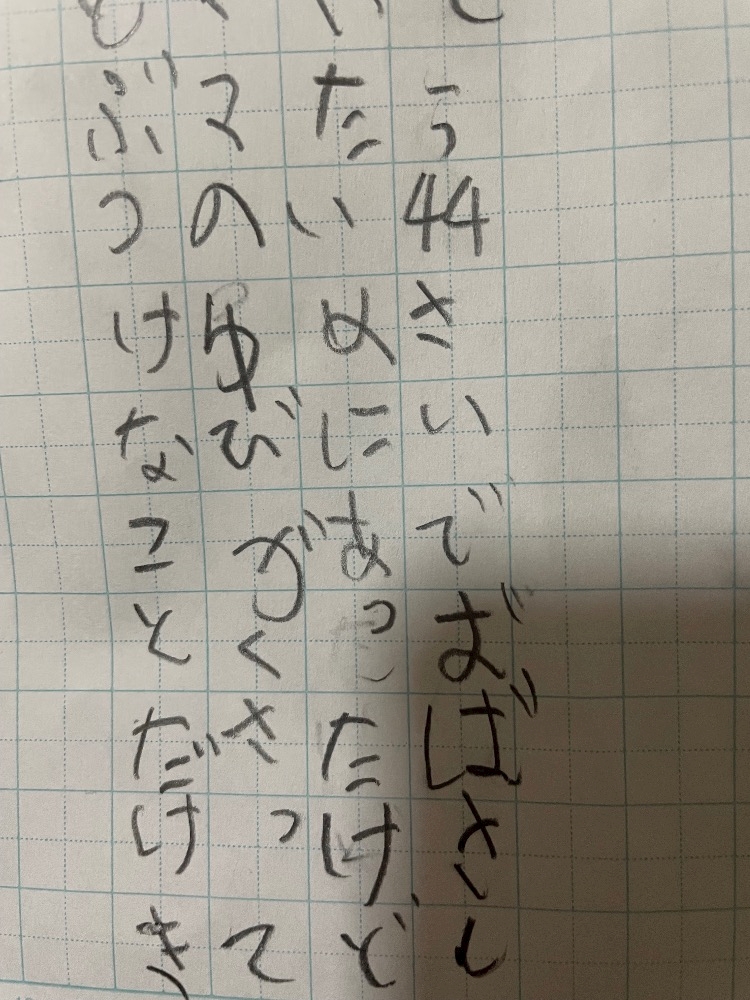 う44さいでおばさし
たいめにあったけど
マのゆびがくさって
ぶつけなことだけき